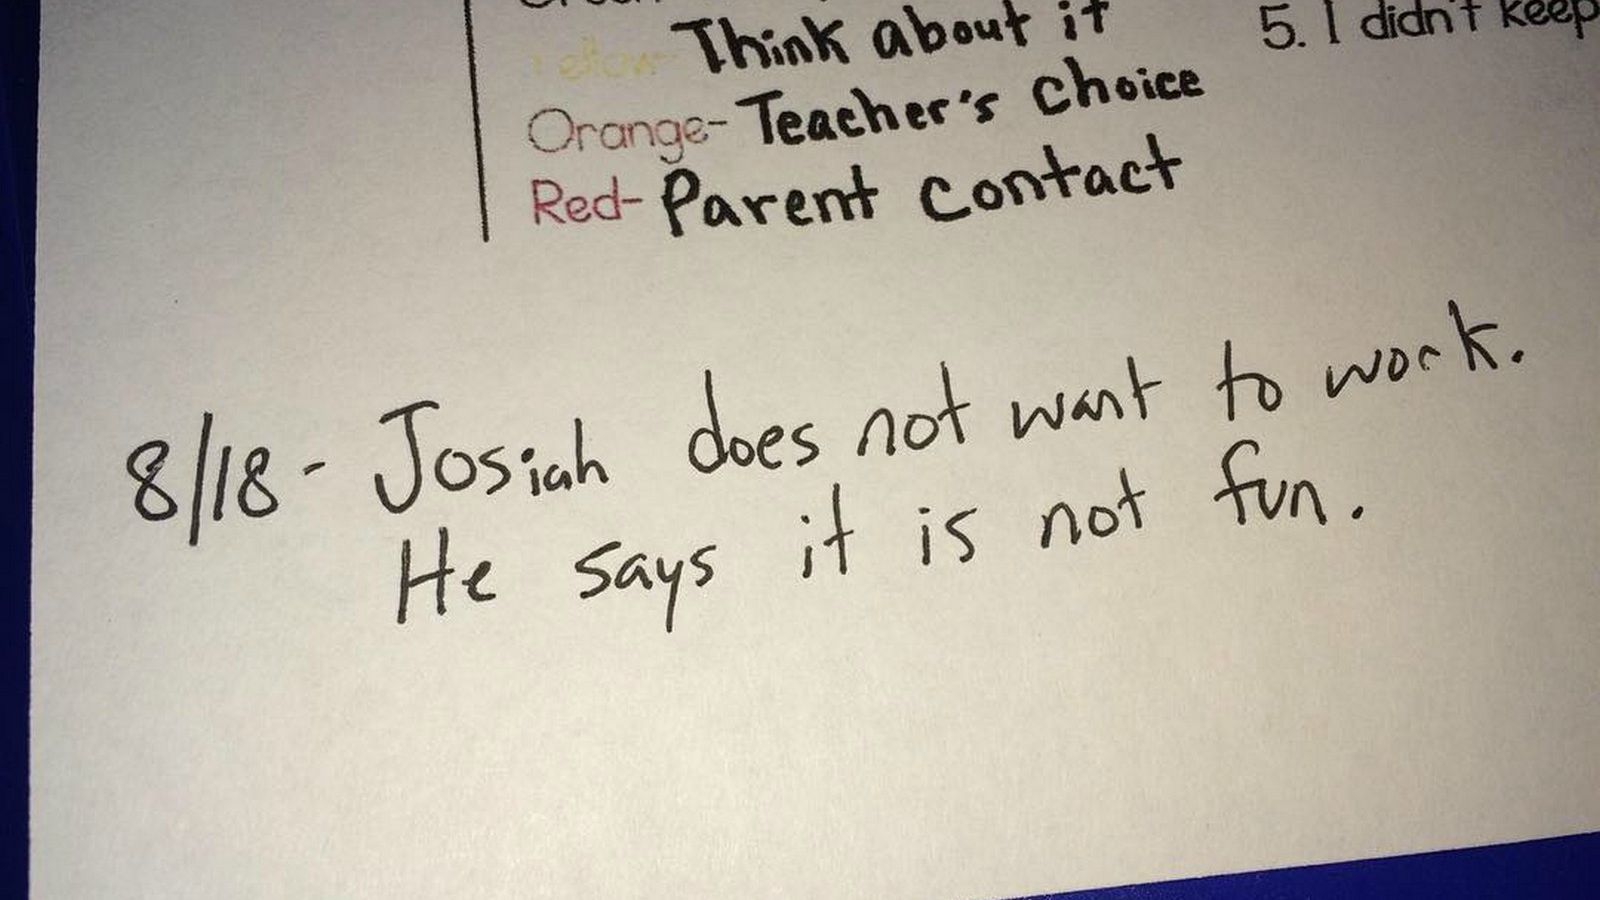 Yellow- Think about it
Orange- Teacher's choice
Red- Parent contact
5. I didn't keep
8/18 - Josiah does not want to work.
He says it is not fun.